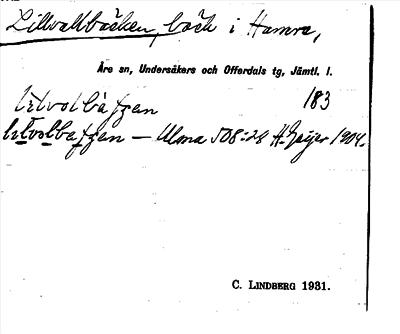 Lillvallbäcken, bäck i Hamre,
Åre sn, Undersåkers och Offerdals tg, Jämtl. l.
183
— Ulma 508:28 H. Geijer 1904.
C. LINDBERG 1931.